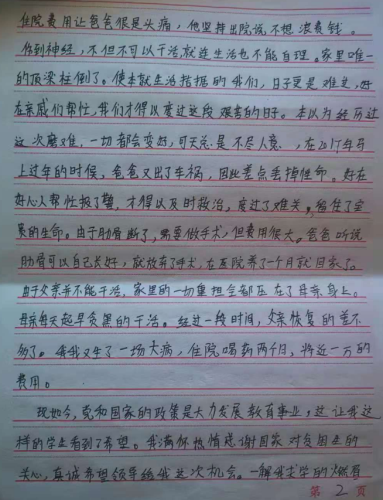 住院费用让爸爸很是头痛，他坚持出院说不想浪费钱。
伤到神经，不但不可以干活就连生活也不能自理。家里唯一
的顶梁柱倒了。使本就生活拮据的我们，日子更是难过，好
在亲戚们帮忙，我们才得以度过这段艰苦的日子。本以为经历过
这次磨难，一切都会变好，可天总是不尽人意，在2011年马
上过年的时候，爸爸又出了车祸，因此差点丢掉性命。好在
好心人帮忙报了警，才得以及时救治，度过了难关。留住了宝
贵的生命。由于肋骨断了，需要做手术，但费用很大。爸爸听说
肋骨可以自己长好，就放弃了手术，在医院养了一个月就回家了。
由于父亲并不能干活，家里的一切重担全都压在了母亲身上。
母亲每天起早贪黑的干活。经过一段时间，父亲恢复的差不
多了。我又生了一场大病，住院喝药两个月，将近一万的
费用。
现如今，党和国家的政策是大力发展教育事业，这让我这
样的学生看到了希望。我满怀热情感谢国家对贫困生的
关心，真诚希望领导给我这次机会。一解我求学的燃眉
第 2 页